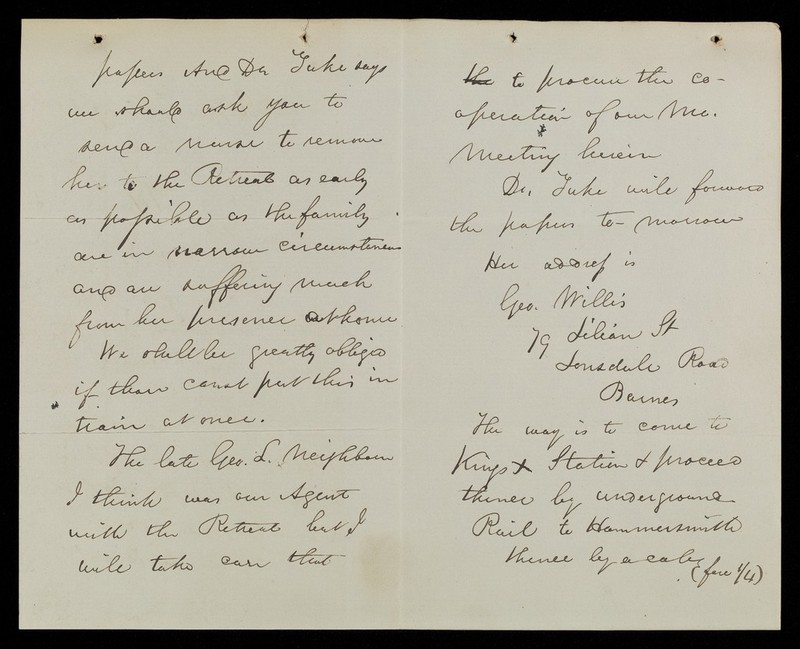 papers And Dr Tuke says
we should ask you to
send a nurse to remove
her to the Retreat as early
as possible as the family
are in narrow circumstances
and are suffering much
from her presence at home
We shall be greatly obliged
if thou canst put this in
train at once.
The late Geo. S. Neighbour
I think was our Agent
with the Retreat but I
will take care that
the to procure the co-
operation of our Mo.
Meeting herein
Dr. Tuke will forward
the papers to-morrow
Her address is
Geo. Willis
79 Lilian St
Lonsdale Road
Barnes
The way is to come to
Kings X Station & proceed
thence by underground
Rail to Hammersmith
thence by a cab
(fare 1/4)